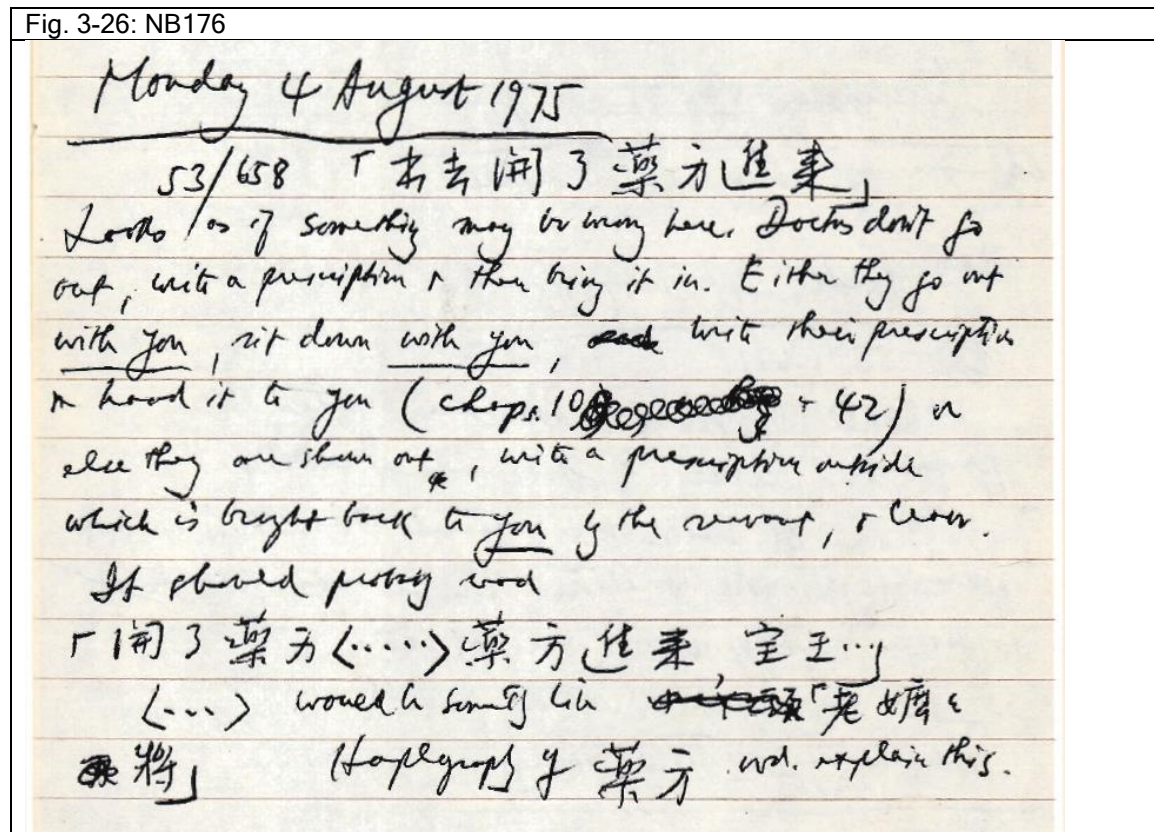 Fig. 3-26: NB176
Monday 4 August 1975
53/658 「出去開了薬方進来」
Looks as if something may be wrong here. Doctors don't go
out, write a prescription & then bring it in. Either they go out
with you, sit down with you, write their prescription
& hand it to you (chaps. 10 & 42) or
else they are shown out, write a prescription outside
which is brought back to you by the servant, & leave.
It should probably read
「開了薬方〈.....〉薬方進来 宝玉...」
〈...〉 would be something like 「老嬷々
将」 Haplography of 薬方 wd. explain this.